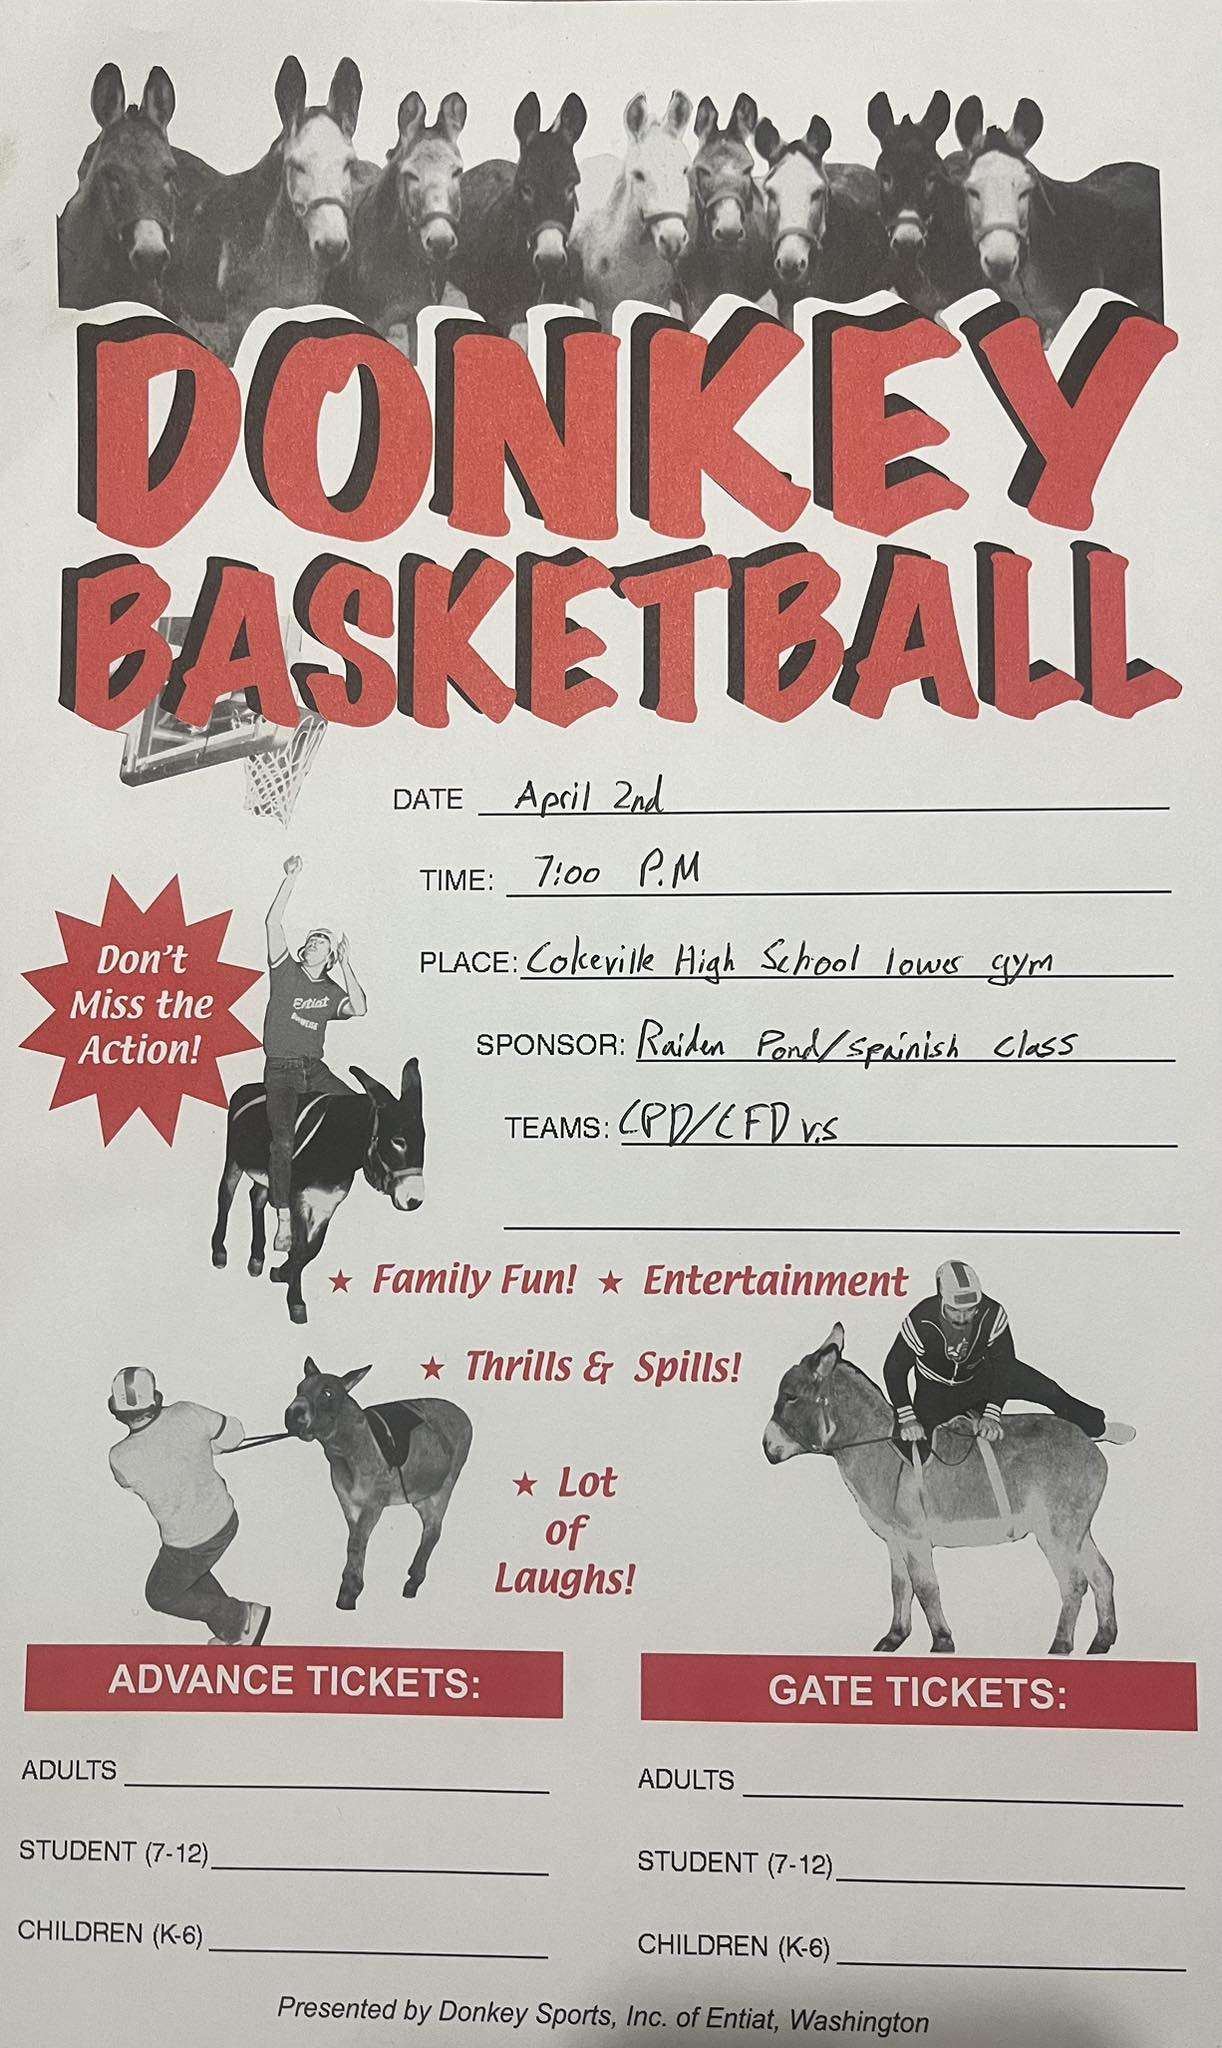 DONKEY
BASKETBALL
DATE April 2nd
TIME: 7:00 P.M
PLACE: Cokeville High School lower gym
SPONSOR: Raiden Pond/spainish class
TEAMS: CPD/CFD v.s
Don't
Miss the
Action!
Entiat
★ Family Fun! ★ Entertainment
★ Thrills & Spills!
★ Lot
of
Laughs!
ADVANCE TICKETS:
ADULTS
STUDENT (7-12)
CHILDREN (K-6)
GATE TICKETS:
ADULTS
STUDENT (7-12)
CHILDREN (K-6)
Presented by Donkey Sports, Inc. of Entiat, Washington